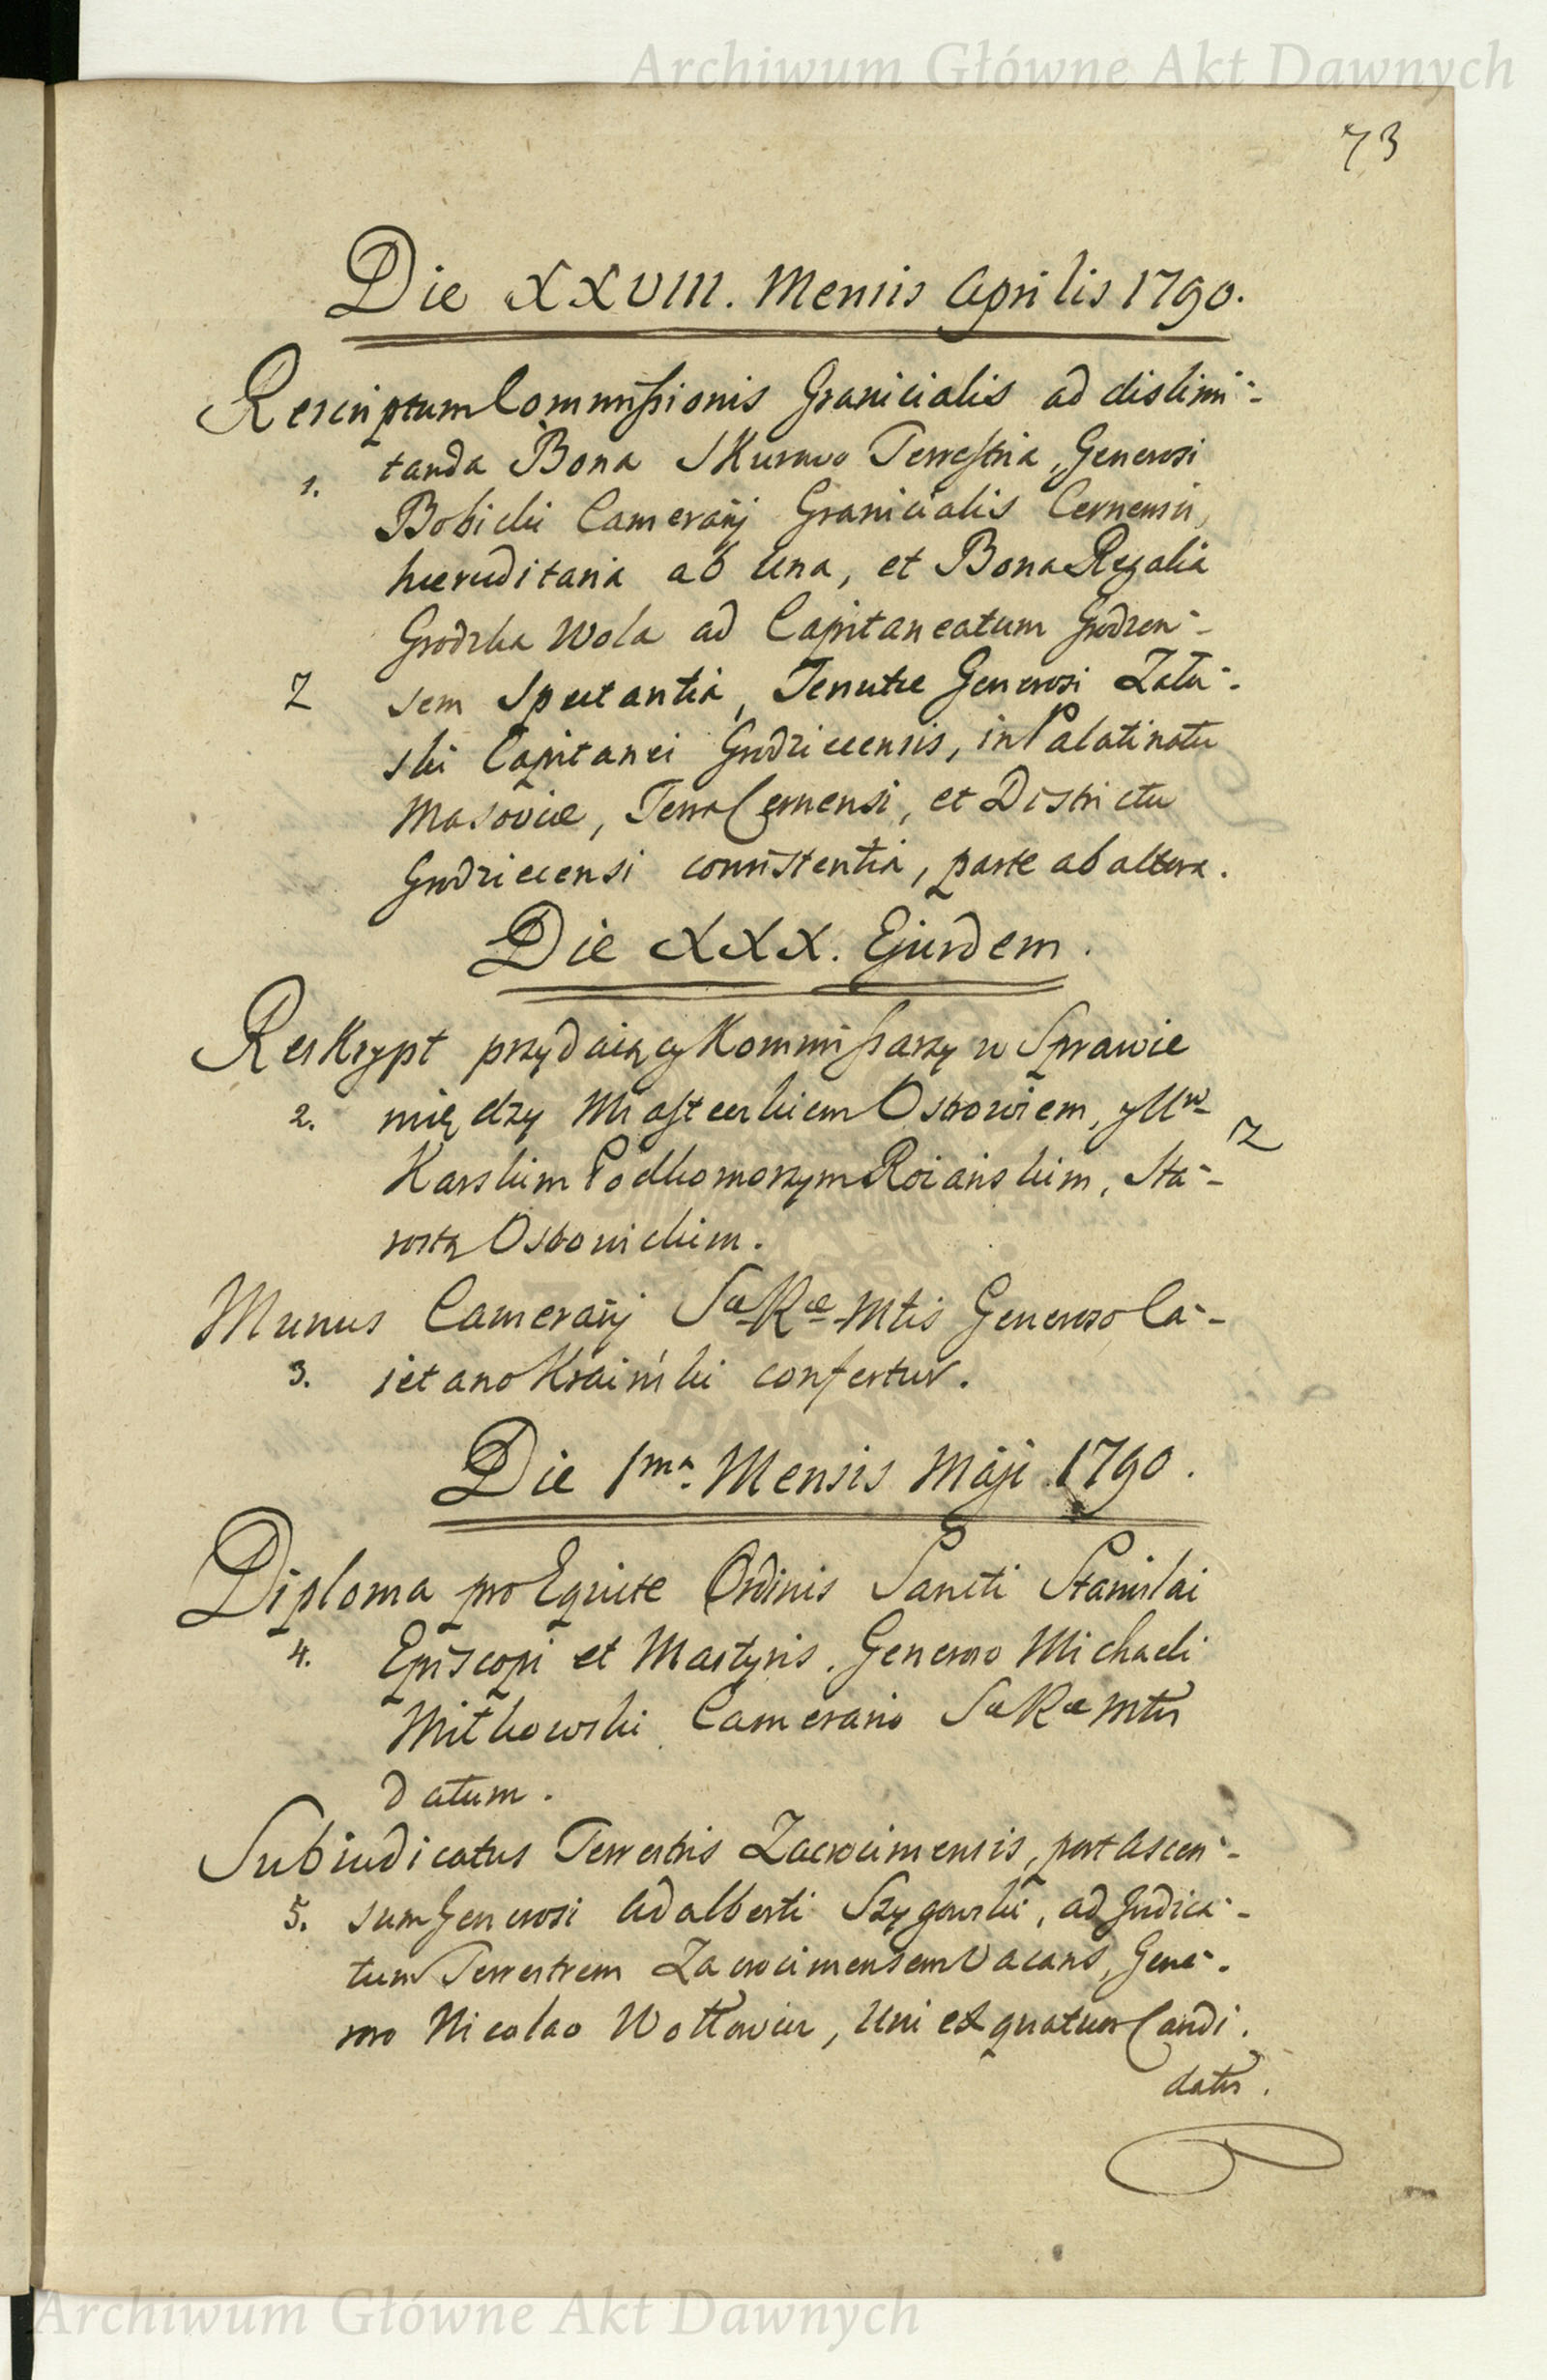 Archiwum Główne Akt Dawnych
73
Die XXVIII. Mensis Aprilis 1790.
Rescriptum Commissionis Granicialis ad dislimi=
1. tanda Bona Skurowo Terrestria, Generosi
Bobicki Camerarij Granicialis Cernensis,
haereditaria ab una, et Bona Regalia
Grodzka Wola ad Capitaneatum Grodzen=
Z sem Spectantia, Tenutæ Generosi Zału=
ski Capitanei Grodziecensis, in Palatinatu
Masoviæ, Terra Cernensi, et Districtu
Grodziecensi consistentia, parte ab altera.
Die XXX. Ejusdem.
Reskrypt przydaiący Kommissarzy w Sprawie
2. między Miasteczkiem Ostrowiem, y Ur
Z
Karskim Podkomorzym Rożańskim, Sta=
rostą Ostrowickim.
Munus Camerarij Sæ Ræ Mtis Generoso Ca=
3. ietano Kraiński confertur.
Die 1ma. Mensis Maji 1790.
Diploma pro Equite Ordinis Sancti Stanislai
4. Episcopi et Martyris. Generoso Michaeli
Mitkowski Camerario Sæ Ræ Mtis
datum.
Subiudicatus Terrestris Zacrocimensis, post ascen=
5. sum Generosi Adalberti Szygowski, ad Judica=
tum Terrestrem Zacrocimensem Vacans, Gene=
roso Nicolao Wołłowicz, Uni ex quatuor Candi.
datis.
DAWNY
Archiwum Główne Akt Dawnych